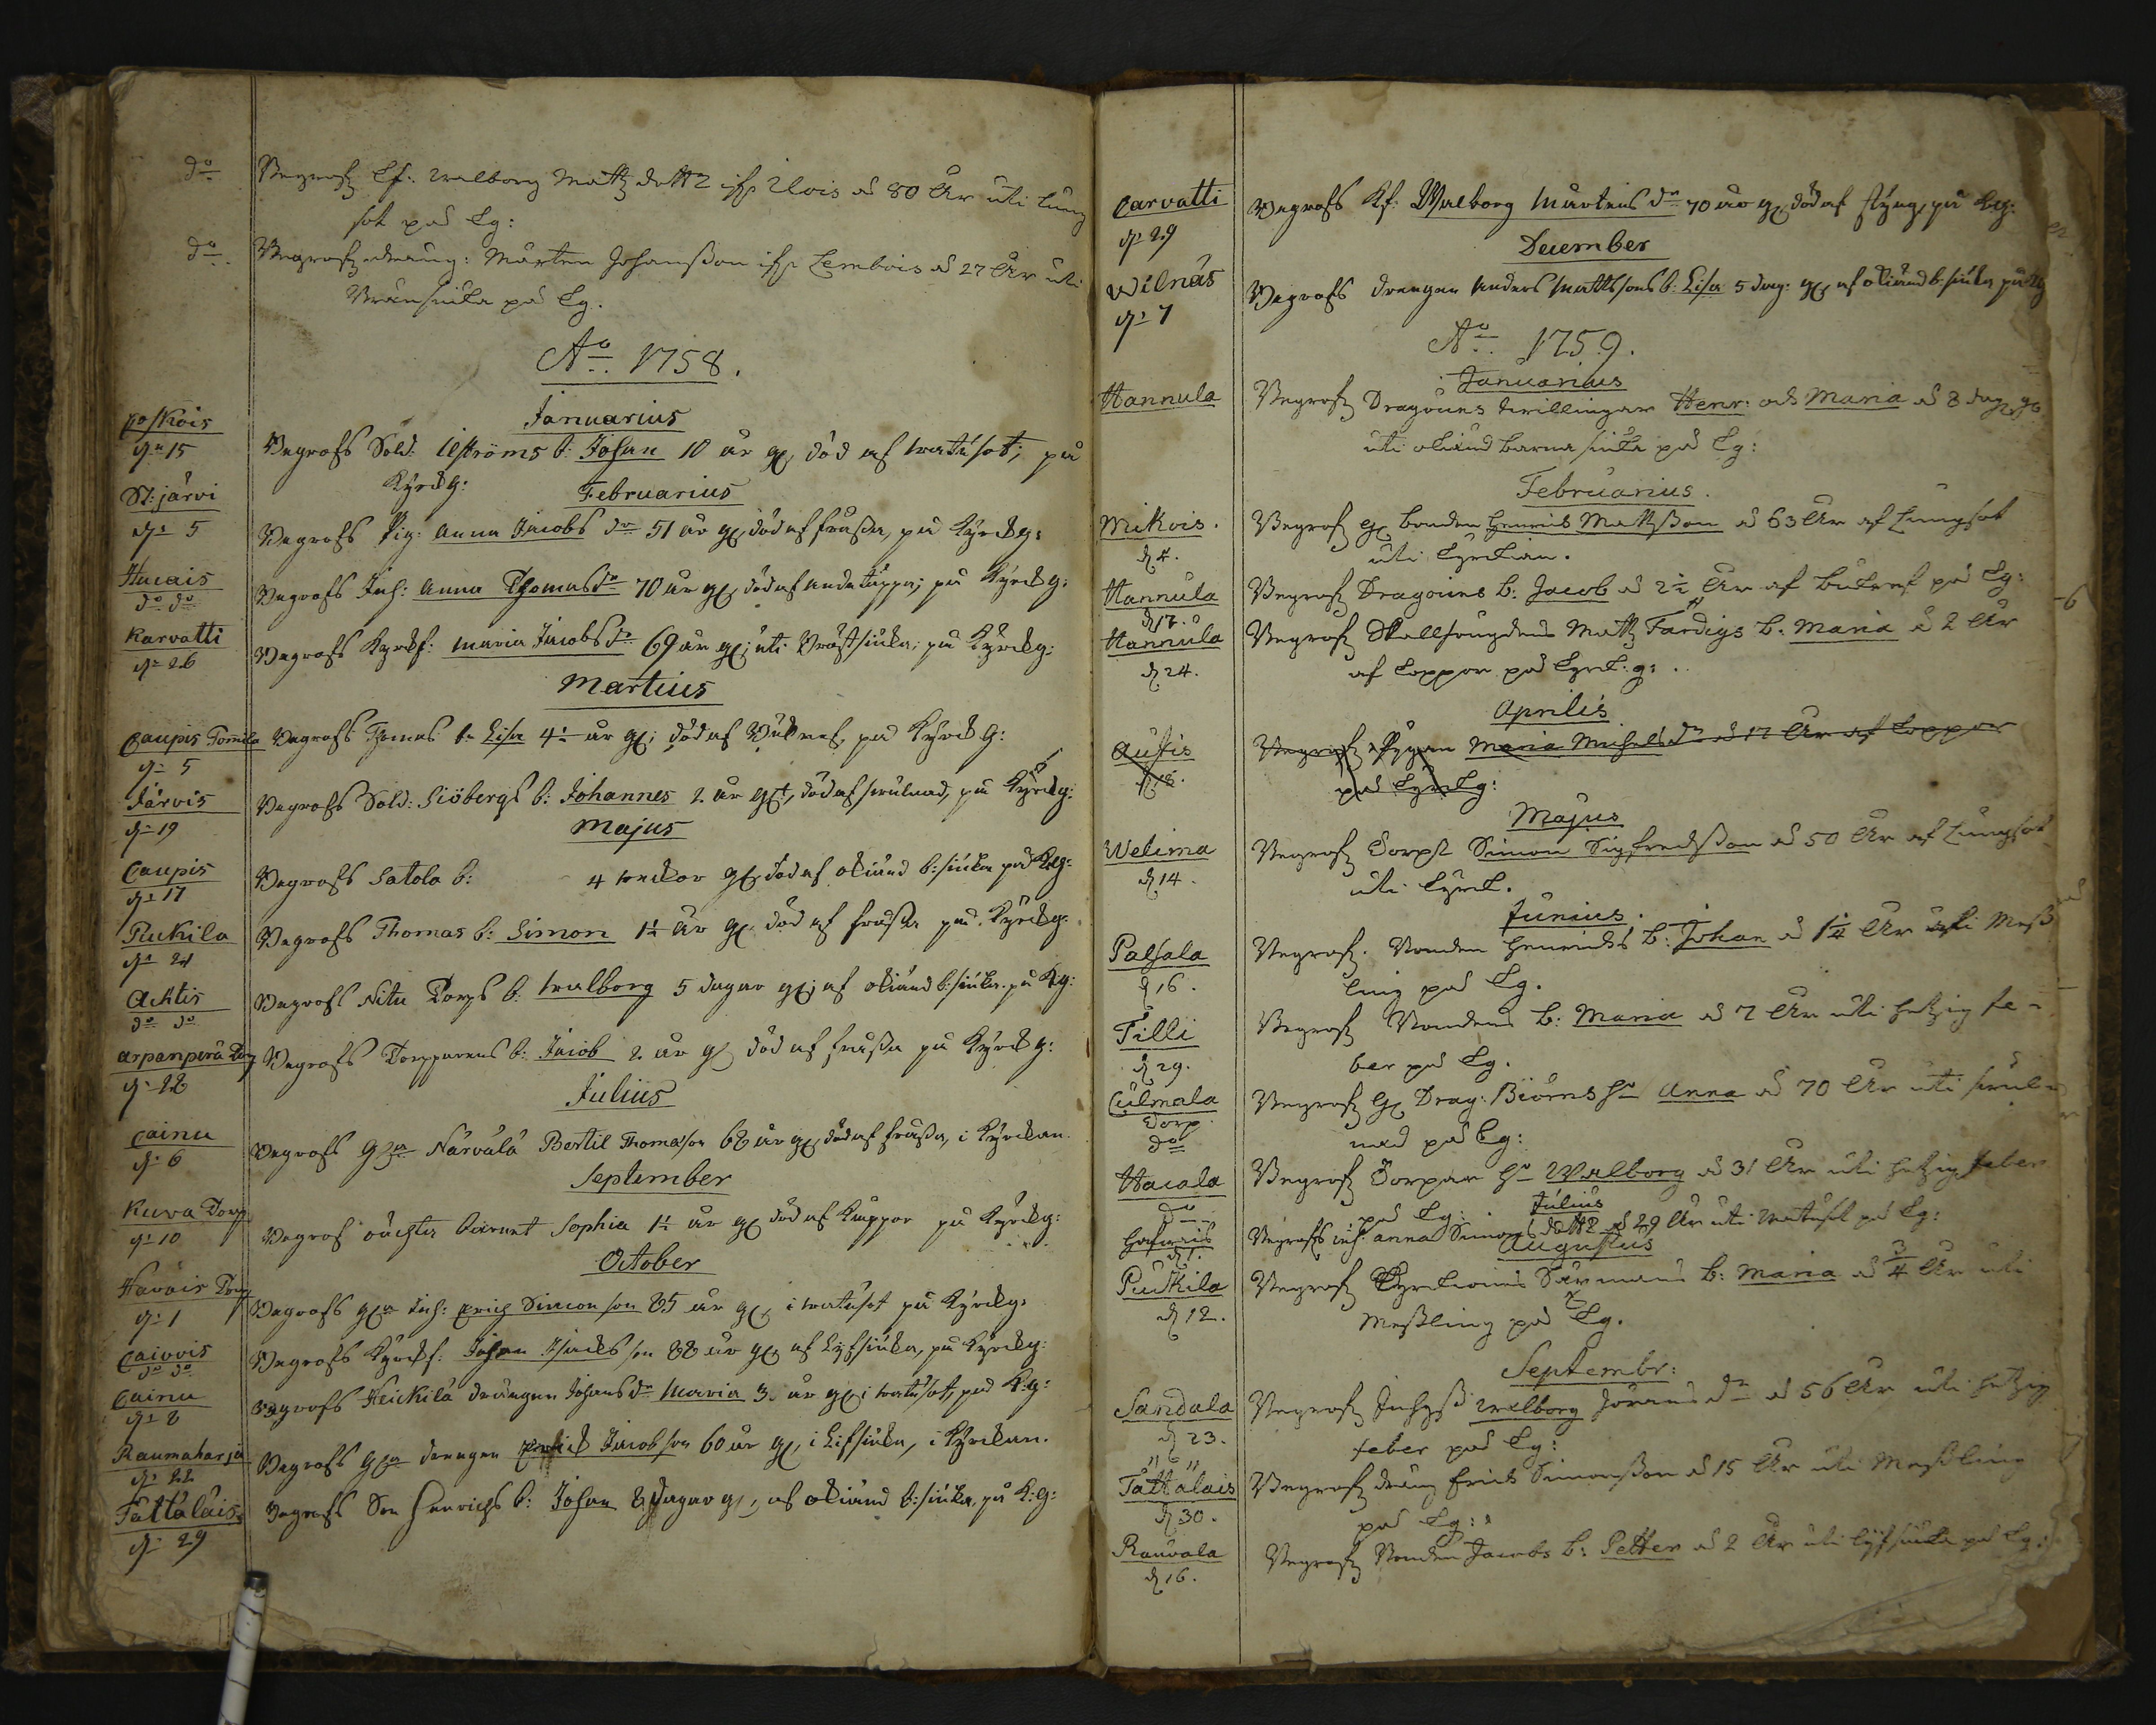 do Begrofz Ef: Walborg Matz dottr ifr. Ilois a 80 åhr uti lung
sot på Kg:
do Begrofz dräng: Mårten Johanßon ifr. Lembois a 27 åhr uti
Brånsiuka på Kg.
Ao. 1758.
Januarius
Koskois
d. 15 Begrofs Sold: b: Johan 10 år gl, död af watusot, på
Kyrckg:
Februarius
St: järvi
d. 5 Begrofs Pig: Anna Jacobs dr 51 år gl, död af fråssa, på Kyrckg:
Hucais
do do Begrofs Inh: Anna Thomas dr 70 år gl, död af andetäppa, på Kyrckg:
Karvatti
d. 26 Begrofs Kyrckf: Maria Jacobs dr 69 år gl; uti Bröstsiuka, på Kyrckg:
Martius
Caupis Tomila
d. 5 Begrofs Thomas b: Lisa 4 år gl: död af Bukref, på Kyrckg:
Järvis
d. 19 Begrofs Sold: Siöbergs b: Johannes 2 år gl, död af swulnad, på Kyrckg:
Majus
Caupis
d. 17 Begrofs Satola b: 4 weckor gl, död af okiänd b: siuka på Kg:
Puckila
d. 21 Begrofs Thomas b: Simon 1½ år gl. död af fråssa på Kyrckg:
Achtis
do do Begrofs Torps b: Walborg 5 dagar gl; af okiänd b: siuka. på Kg:
Arpanperä Torp
d. 28 Begrofs Torpparens b: Jacob 2 år gl död af fråssa på Kyrckg:
Julius
Cainu
d. 6 Begrofs Närvälä Bertil Thomasson 68 år gl, död af fråssa, i Kyrckan.
September
Kuva Torp
d. 10 Begrof oächta barnet Sophia 1½ år gl död af Kåppor på Kyrckg:
October
Haväis Torp
d. 1 Begrofs Inh: Erich Simonson 85 år gl, i watusot på Kyrckg:
Caivois
do do Begrofs Kyrckf: Johan Isacks son 88 år gl, af Lifsiuka, på Kyrckg:
Cainu
d. 8 Begrofs Heickilä drängen Johans dr Maria 3 år gl, i watusot, på K:g:
Raumaharja
d. 22 Begrofs drengen Erick Jacobson 60 år gl, i Lifsiuka, i Kyrckan.
Tättäläis
d. 29 Begrofs Son Henrichs b: Johan 8 dagar gl, af okiänd b: siuka, på K:g:
Carvatti
d. 29 Begrofs Kf: Walborg Mårtens dr 70 år gl, död af styng, på Kg:
December
Wilnäs
d. 7 Begrofs drengen Anders Mattssons b: Lisa 5 dag: gl, af okiänd b: siuka på Kg
Ao. 1759.
Januarius
Hannula Begrofz Dragouns twillingar Henr: och Maria a 8 dag:
uti okiänd barna siuka på Kg:
Februarius.
Mikois.
d. 4. Begrof gl bonden Henrick Matzßon a 63 åhr af Lungsot
uti Kyrckian.
Hannula
d. 17. Begrofz Dragouns b: Jacob a 2½ åhr af Bukref på Kg:
Hannula
d. 24. Begrofz Skallfougdens Matz Fardigs b: Maria a 2 åhr
af Coppor på Kyrck:g:
Aprilis
Autis
d. 18. Begrofz Pigan Maria Michels dr a 17 åhr af Coppor
på Kyrckg:
Majus
Welima
d. 14. Begrofz Torp: Simon Sigfredsßon a 50 åhr af Lungsot
uti Kyrck.
Junius.
Palsala
d. 16. Begrofz. Bonden Henricks b: Johan a 1¼ åhr uti Meß
ling på Kg.
Tilli
d. 29. Begrofz Bondens b: Maria a 7 åhr uti hetzig fe-
ber på Kg.
Culmala
Torp
do Begrofz gl Drag: Biörns Anna a 70 åhr uti swul-
nad på Kg:
Hacala
do Begrofz Torpar Walborg a 31 åhr uti hetzig feber
på Kg:
Julius
d. 1. Begrofz inh: Anna Simons dottr a 29 åhr uti watusot på Kg:
Augustus
Puckila
d. 12. Begrofz b: Maria a ¾ åhr uti
Meßling på Kg.
Septembr:
Sandala
d. 23. Begrofz Walborg Jörans dr a 56 åhr uti hetzig
feber på Kg:
Tättäläis
d. 30. Begrofz dräng Erick Simonßon a 15 åhr uti Meßling
på Kg:
Rauvala
d. 16. Begrofz Bonden Jacobs b: Petter a 2 åhr uti lifsiuka på Kg: